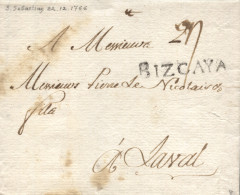 S. Sebastian 22.12.1766
A Monsieur
BIZCAYA
Monsieur Pierre Le Nicolais
fils
À Laval